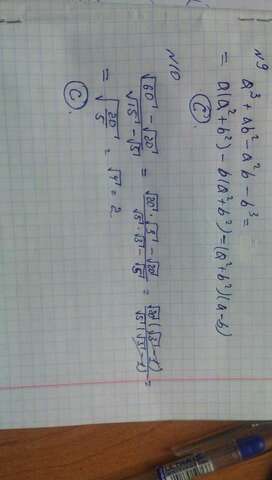 №9
a³ + ab² - a²b - b³ =
= a(a² + b²) - b(a² + b²) = (a² + b²)(a - b)
C.
№10
(√60 - √20) / (√15 - √5) = (√20 · √3 - √20) / (√5 · √3 - √5) = (√20(√3 - 1)) / (√5(√3 - 1)) =
= √(20/5) = √4 = 2.
C.